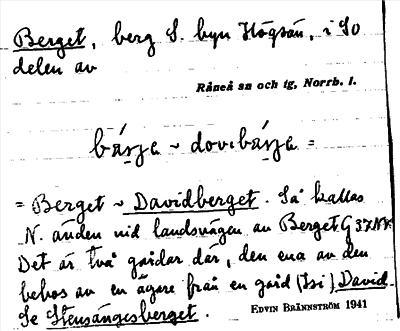 Berget, berg S. byn Högsån, i SO
delen av
Råneå sn och tg, Norrb. l.
bá̱rje ~ dovibá̱rje =
= Berget ~ Davidberget. Så kallas
N. änden vid landsvägen av Berget G 37 NV.
Det är två gårdar där, den ena av den
bebos av en ägare från en gård (Isi) David.
Se Stensängesberget.
EDVIN BRÄNNSTRÖM 1941